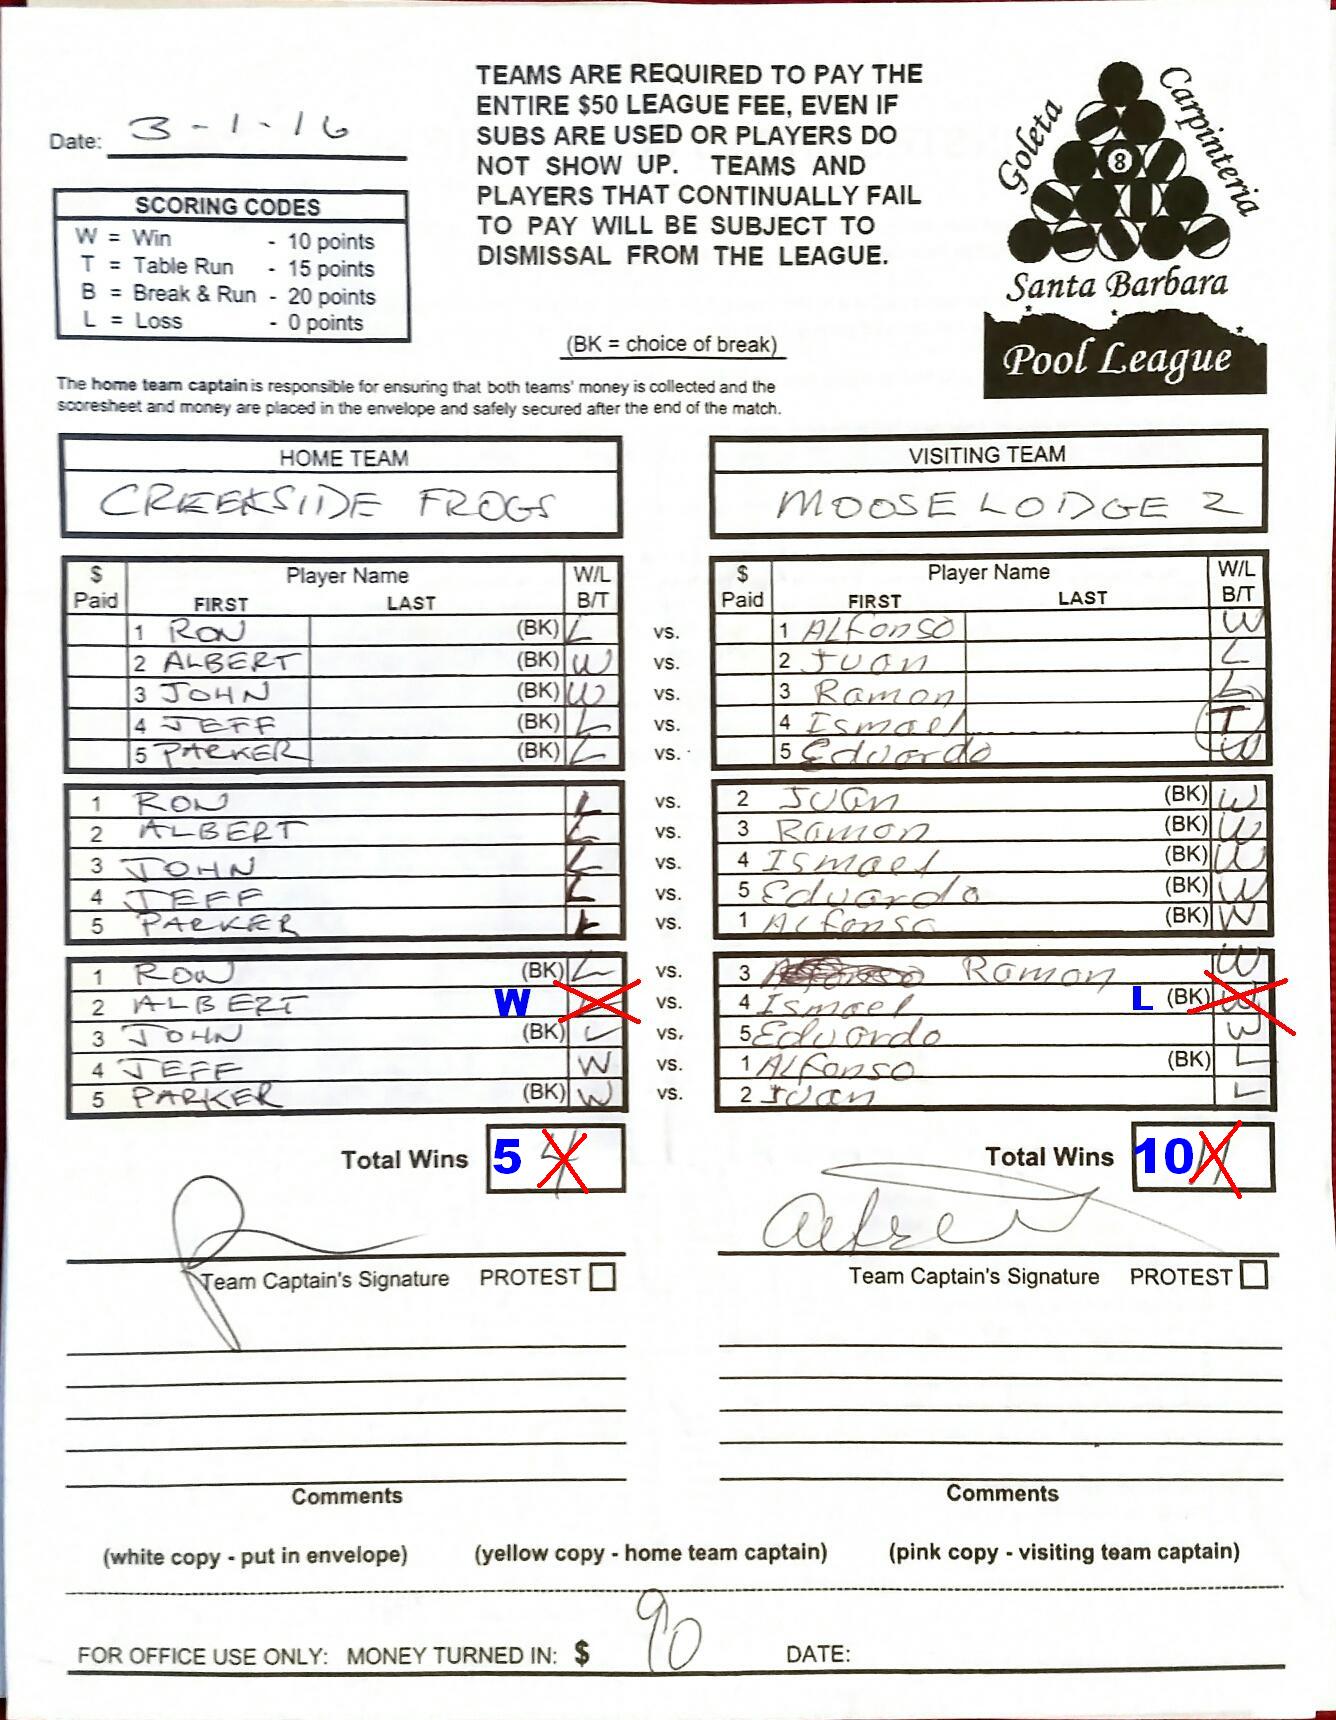 Date: 3-1-16
TEAMS ARE REQUIRED TO PAY THE
ENTIRE $50 LEAGUE FEE, EVEN IF
SUBS ARE USED OR PLAYERS DO
NOT SHOW UP. TEAMS AND
PLAYERS THAT CONTINUALLY FAIL
TO PAY WILL BE SUBJECT TO
DISMISSAL FROM THE LEAGUE.
Goleta
Carpinteria
8
Santa Barbara
Pool League
SCORING CODES
W = Win - 10 points
T = Table Run - 15 points
B = Break & Run - 20 points
L = Loss - 0 points
(BK = choice of break)
The home team captain is responsible for ensuring that both teams' money is collected and the
scoresheet and money are placed in the envelope and safely secured after the end of the match.
HOME TEAM VISITING TEAM
CREEKSIDE FROGS MOOSE LODGE 2
$ Player Name W/L $ Player Name W/L
Paid FIRST LAST B/T Paid FIRST LAST B/T
1 RON (BK) L vs. 1 ALFonso W
2 ALBERT (BK) W vs. 2 Juan L
3 JOHN (BK) W vs. 3 Ramon L
4 JEFF (BK) L vs. 4 Ismael T
5 PARKER (BK) L vs. 5 Eduardo W
1 RON L vs. 2 Juan (BK) W
2 ALBERT L vs. 3 Ramon (BK) W
3 JOHN L vs. 4 Ismael (BK) W
4 JEFF L vs. 5 Eduardo (BK) W
5 PARKER L vs. 1 ALFonso (BK) W
1 RON (BK) L vs. 3 Ramon W
2 ALBERT W vs. 4 Ismael L (BK) W
3 JOHN (BK) L vs. 5 Eduardo W
4 JEFF W vs. 1 ALFonso (BK) L
5 PARKER (BK) W vs. 2 Juan L
Total Wins 5 4 Total Wins 10 11
Team Captain's Signature PROTEST Team Captain's Signature PROTEST
Comments Comments
(white copy - put in envelope) (yellow copy - home team captain) (pink copy - visiting team captain)
FOR OFFICE USE ONLY: MONEY TURNED IN: $ 90 DATE: